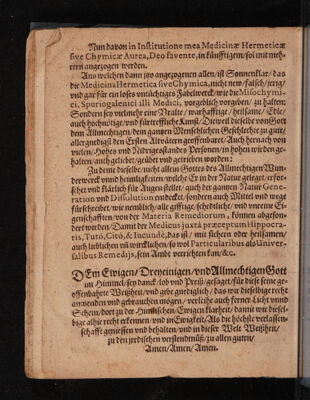 Nun davon in Institutione mea Medicinæ Hermeticæ
sive Chymicæ Aurea, Deo favente, in künfftigem / sol mit meh-
rern angezogen werden.
Aus welchen dann jtzo angezogenen allen / ist Sonnenklar / das
die Medicina Hermetica sive Chymica, nicht new / falsch /
und gar für ein loses untüchtiges Fabelwerck / wie die Misochymi-
ci, Spuriogalenici illi Medici, vorgeblich vorgeben / zu halten:
Sondern sey vielmehr eine Uralte / warhafftige / heilsame / Edle /
auch hochnötige / und fürtreffliche Kunst / Dieweil dieselbe von Gott
dem Allmechtigen / dem gantzen Menschlichen Geschlechte zu gute /
aller gnedigst den Ersten Altvätern geoffenbaret. Auch hernach von
vielen / Hohes und Nidrigestandes Personen / in hohen wirden ge-
halten / auch geliebet / geübet und getrieben worden:
Zu deme dieselbe / nicht allein Gottes des Allmechtigen Wun-
derwerck unnd heimligkeiten / welche Er in der Natur geleget / erfor-
schet und klärlich für Augen stellet / auch der gantzen Natur Gene-
ration und Dissolution entdecket / sondern auch Mittel und wege
fürschreibet / wie nemblich / alle gifftige / schedtliche / und unreine Ei-
genschafften / von der Materia Remediorum, können abgeson-
dert werden / Damit der Medicus juxta præceptum Hippocra-
tis, Tutò, Citò, & Iucundè, das ist / mit sichern oder heilsamen /
auch lieblichen uñ wircklichen / so wol Particularibus als Univer-
salibus Remedijs, sein Ambt verrichten kan / &c.
DEm Ewigen / Dreyeinigen / und Allmechtigen Gott
im Himmel / sey danck / lob und Preiß / gesaget / für diese seine ge-
offenbahrte Weißheit / und gebe gnediglich / das wir dieselbige recht
anwenden und gebrauchen mögen / verleihe auch ferner Licht unnd
Schein / dort zu der Himlischen Ewigen klarheit / damit wir diesel-
bige alhie recht erkennen / und in Ewigkeit / Als die höchste verlassen-
schafft geniessen und behalten / und in dieser Welt Weißheit /
zu den jrrdischen verstendtnüß / zu allen guten /
Amen / Amen / Amen.